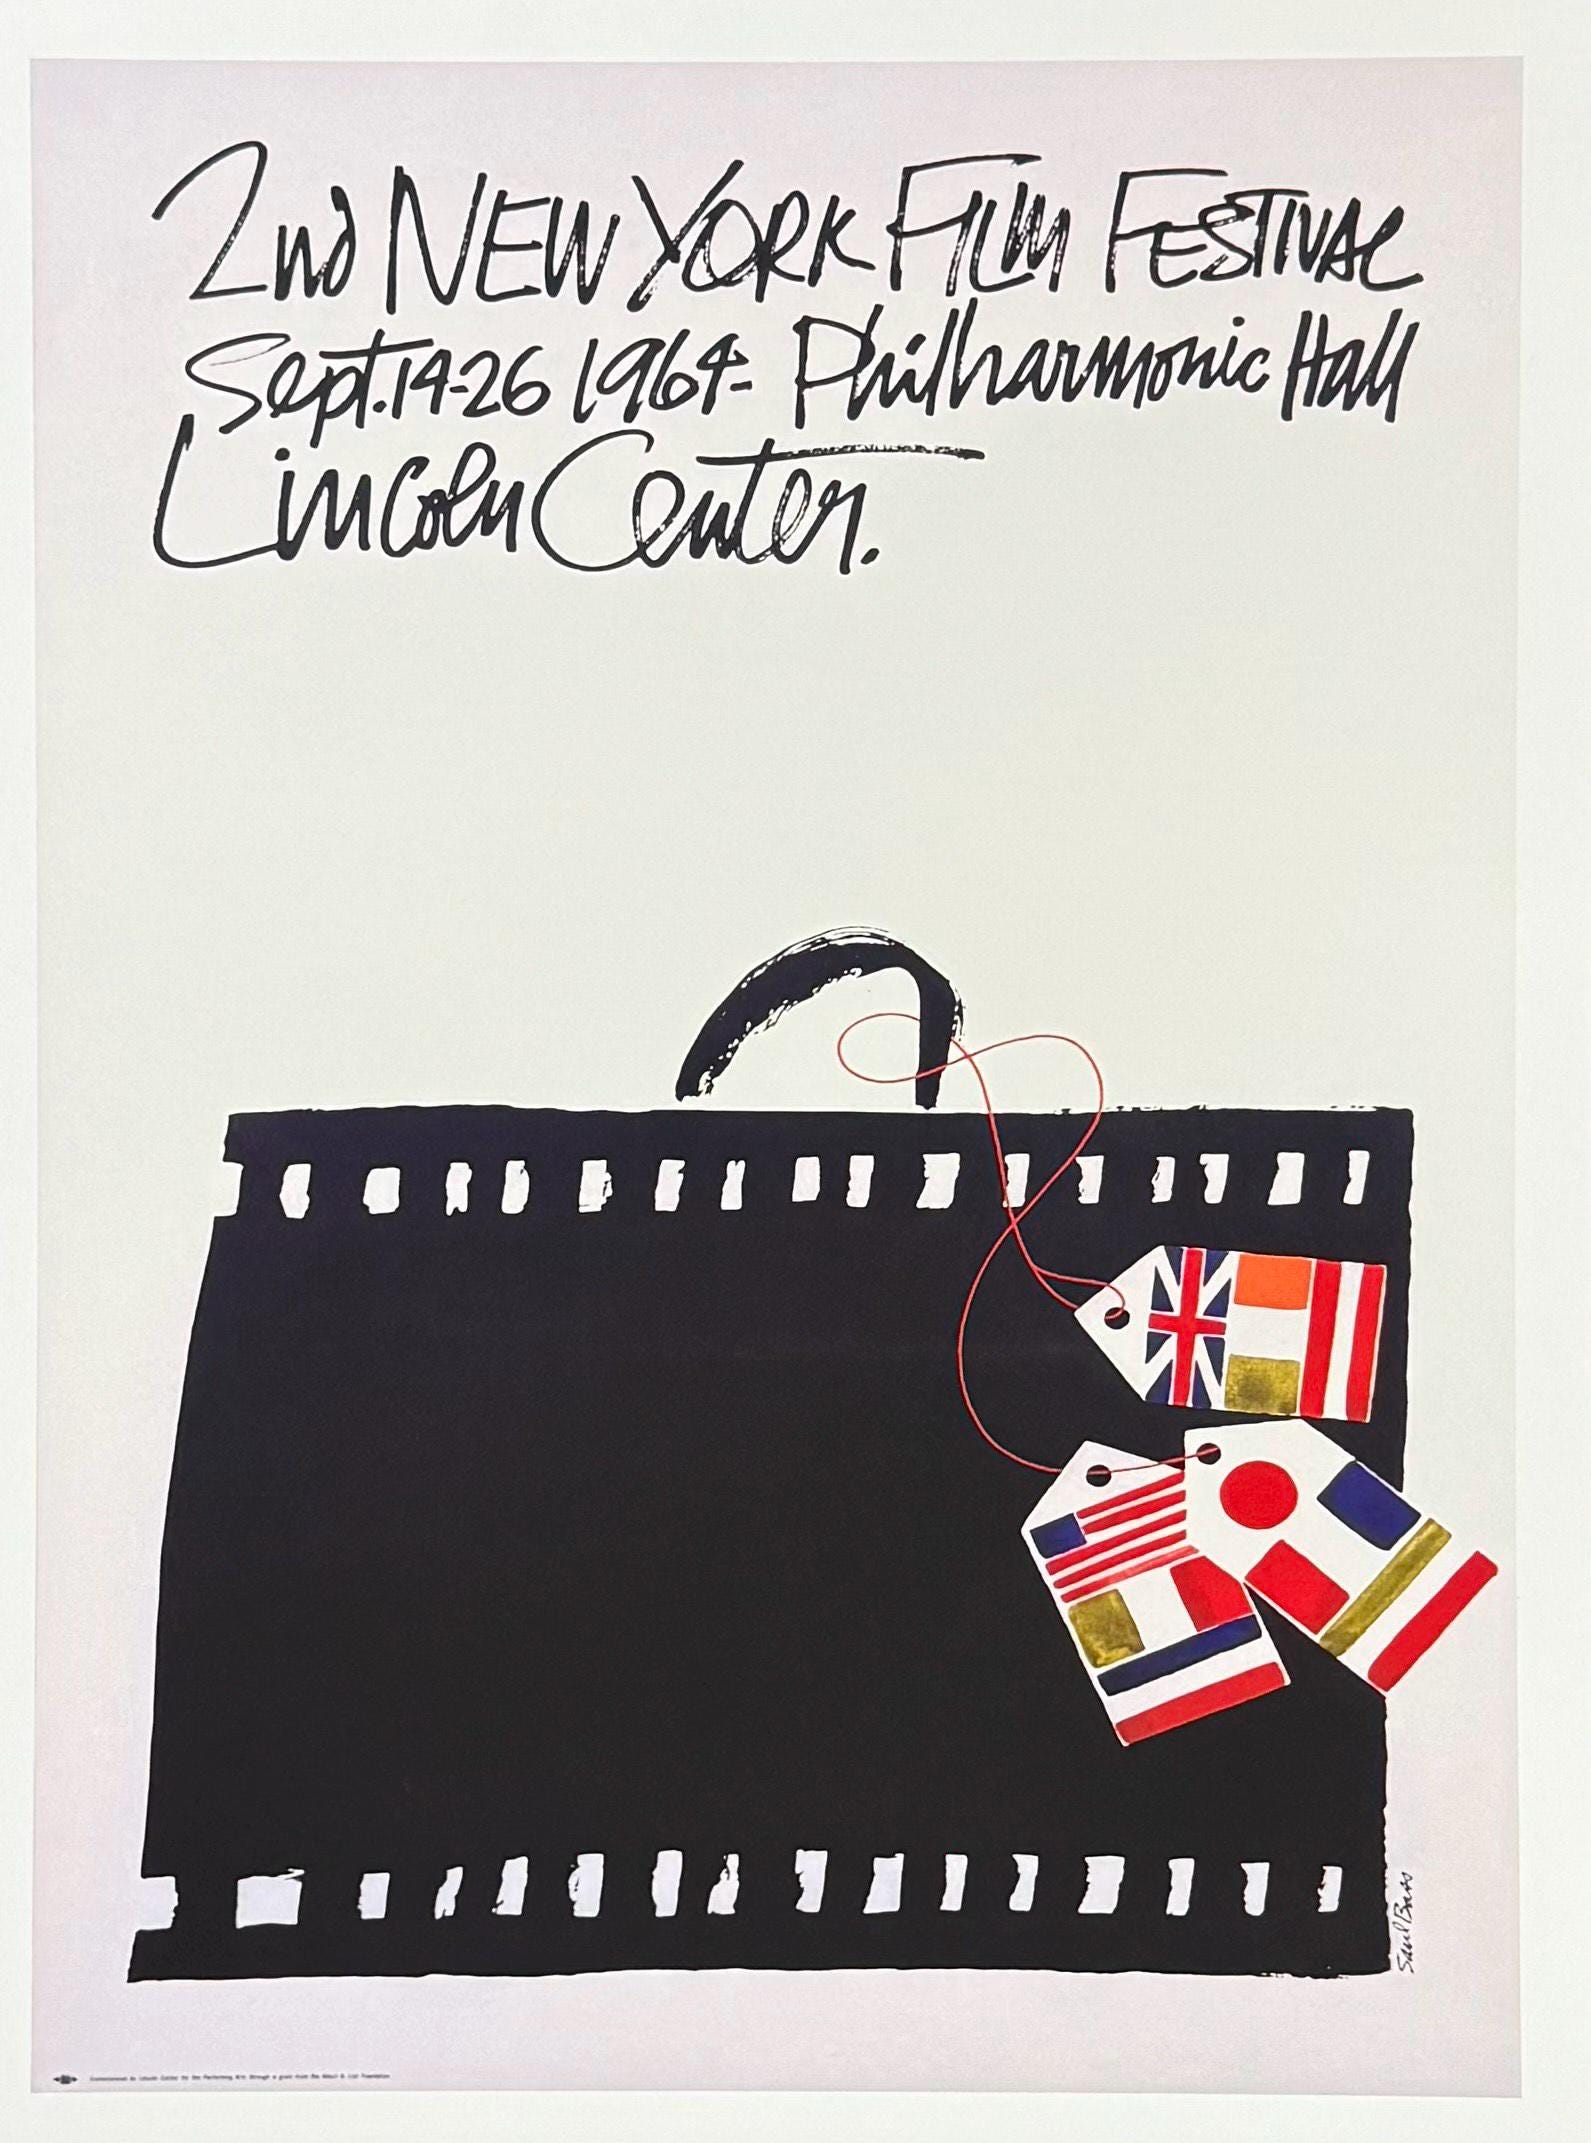 2nd NEW YORK FILM FESTIVAL
Sept. 14-26 1964- Philharmonic Hall
Lincoln Center.
Saul Bass
Commissioned by Lincoln Center for the Performing Arts through a grant from the Albert A. List Foundation